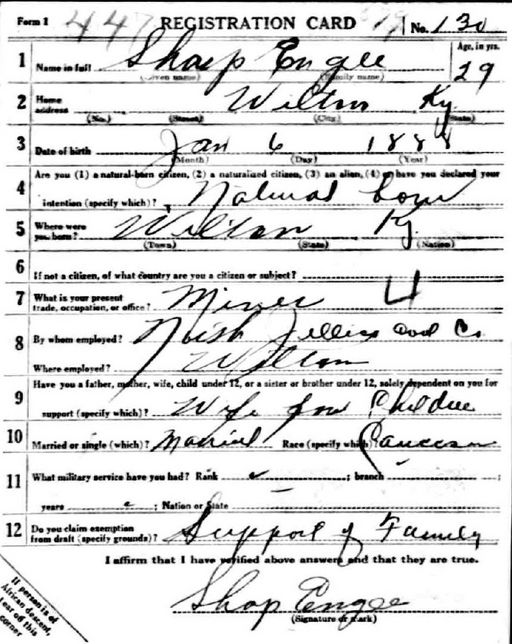 Form 1 447 REGISTRATION CARD No. 130
1 Name in full Sharp Engle Age, in yrs. 29
(Given name) (Family name)
2 Home address Wilton Ky
(No.) (Street) (City) (State)
3 Date of birth Jan 6 1888
(Month) (Day) (Year)
4 Are you (1) a natural-born citizen, (2) a naturalized citizen, (3) an alien, (4) or have you declared your
intention (specify which)? Natural born
5 Where were you born? Wilton Ky
(Town) (State) (Nation)
6 If not a citizen, of what country are you a citizen or subject?
7 What is your present trade, occupation, or office? Miner 4
8 By whom employed? North Jellico Coal Co.
Where employed? Wilton
9 Have you a father, mother, wife, child under 12, or a sister or brother under 12, solely dependent on you for
support (specify which)? Wife Children
10 Married or single (which)? Married Race (specify which)? Caucasian
11 What military service have you had? Rank ; branch
years ; Nation or State
12 Do you claim exemption from draft (specify grounds)? Support of Family
I affirm that I have verified above answers and that they are true.
Shap Engle
(Signature or mark)
If person is of
African descent,
tear off this
corner